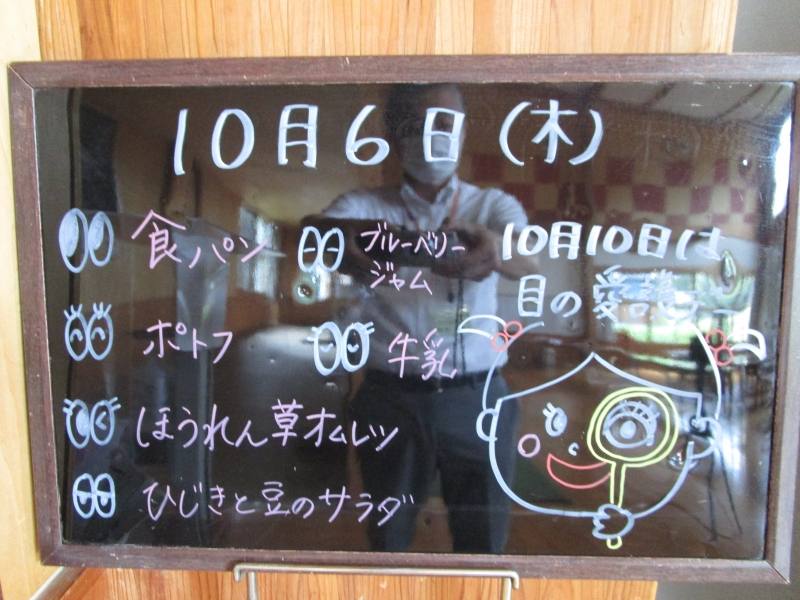 10月6日(木)
食パン
ブルーベリー
ジャム
10月10日は
目の愛護デー
ポトフ
牛乳
ほうれん草オムレツ
ひじきと豆のサラダ